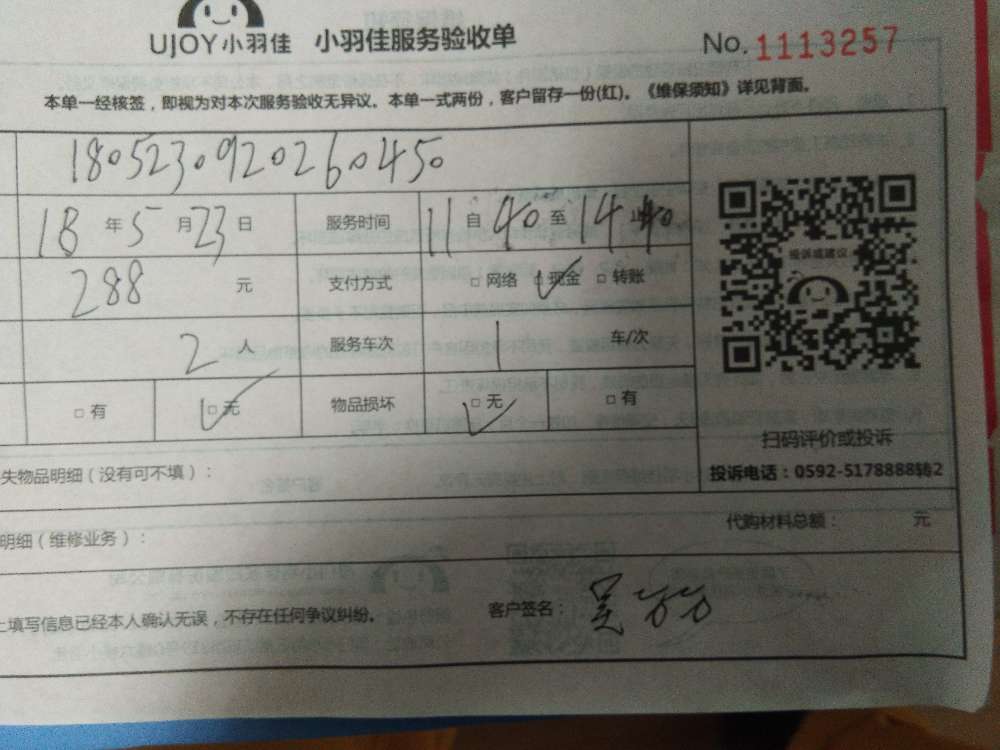 UJOY小羽佳 小羽佳服务验收单 No.1113257
本单一经核签，即视为对本次服务验收无异议。本单一式两份，客户留存一份(红)。《维保须知》详见背面。
1805230920260450
18年5月23日 服务时间 11自40至14 40
288元 支付方式 □网络 □现金 □转账
2人 服务车次 1 车/次
□有 □无 物品损坏 □无 □有
投诉或建议
扫码评价或投诉
失物品明细（没有可不填）：
投诉电话：0592-5178888转2
明细（维修业务）： 代购材料总额： 元
上填写信息已经本人确认无误，不存在任何争议纠纷。 客户签名：吴